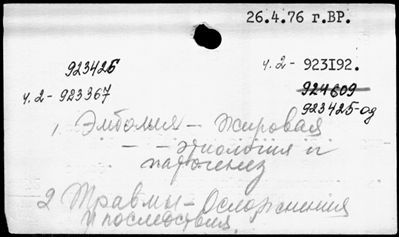 26.4.76 г.ВР.
923426
ч.2-923367
ч.2- 923192.
924609
923425-од
1, Эмболия - Жировая
- - этиология и
патогенез
2 Травмы - Осложнения
и последствия.